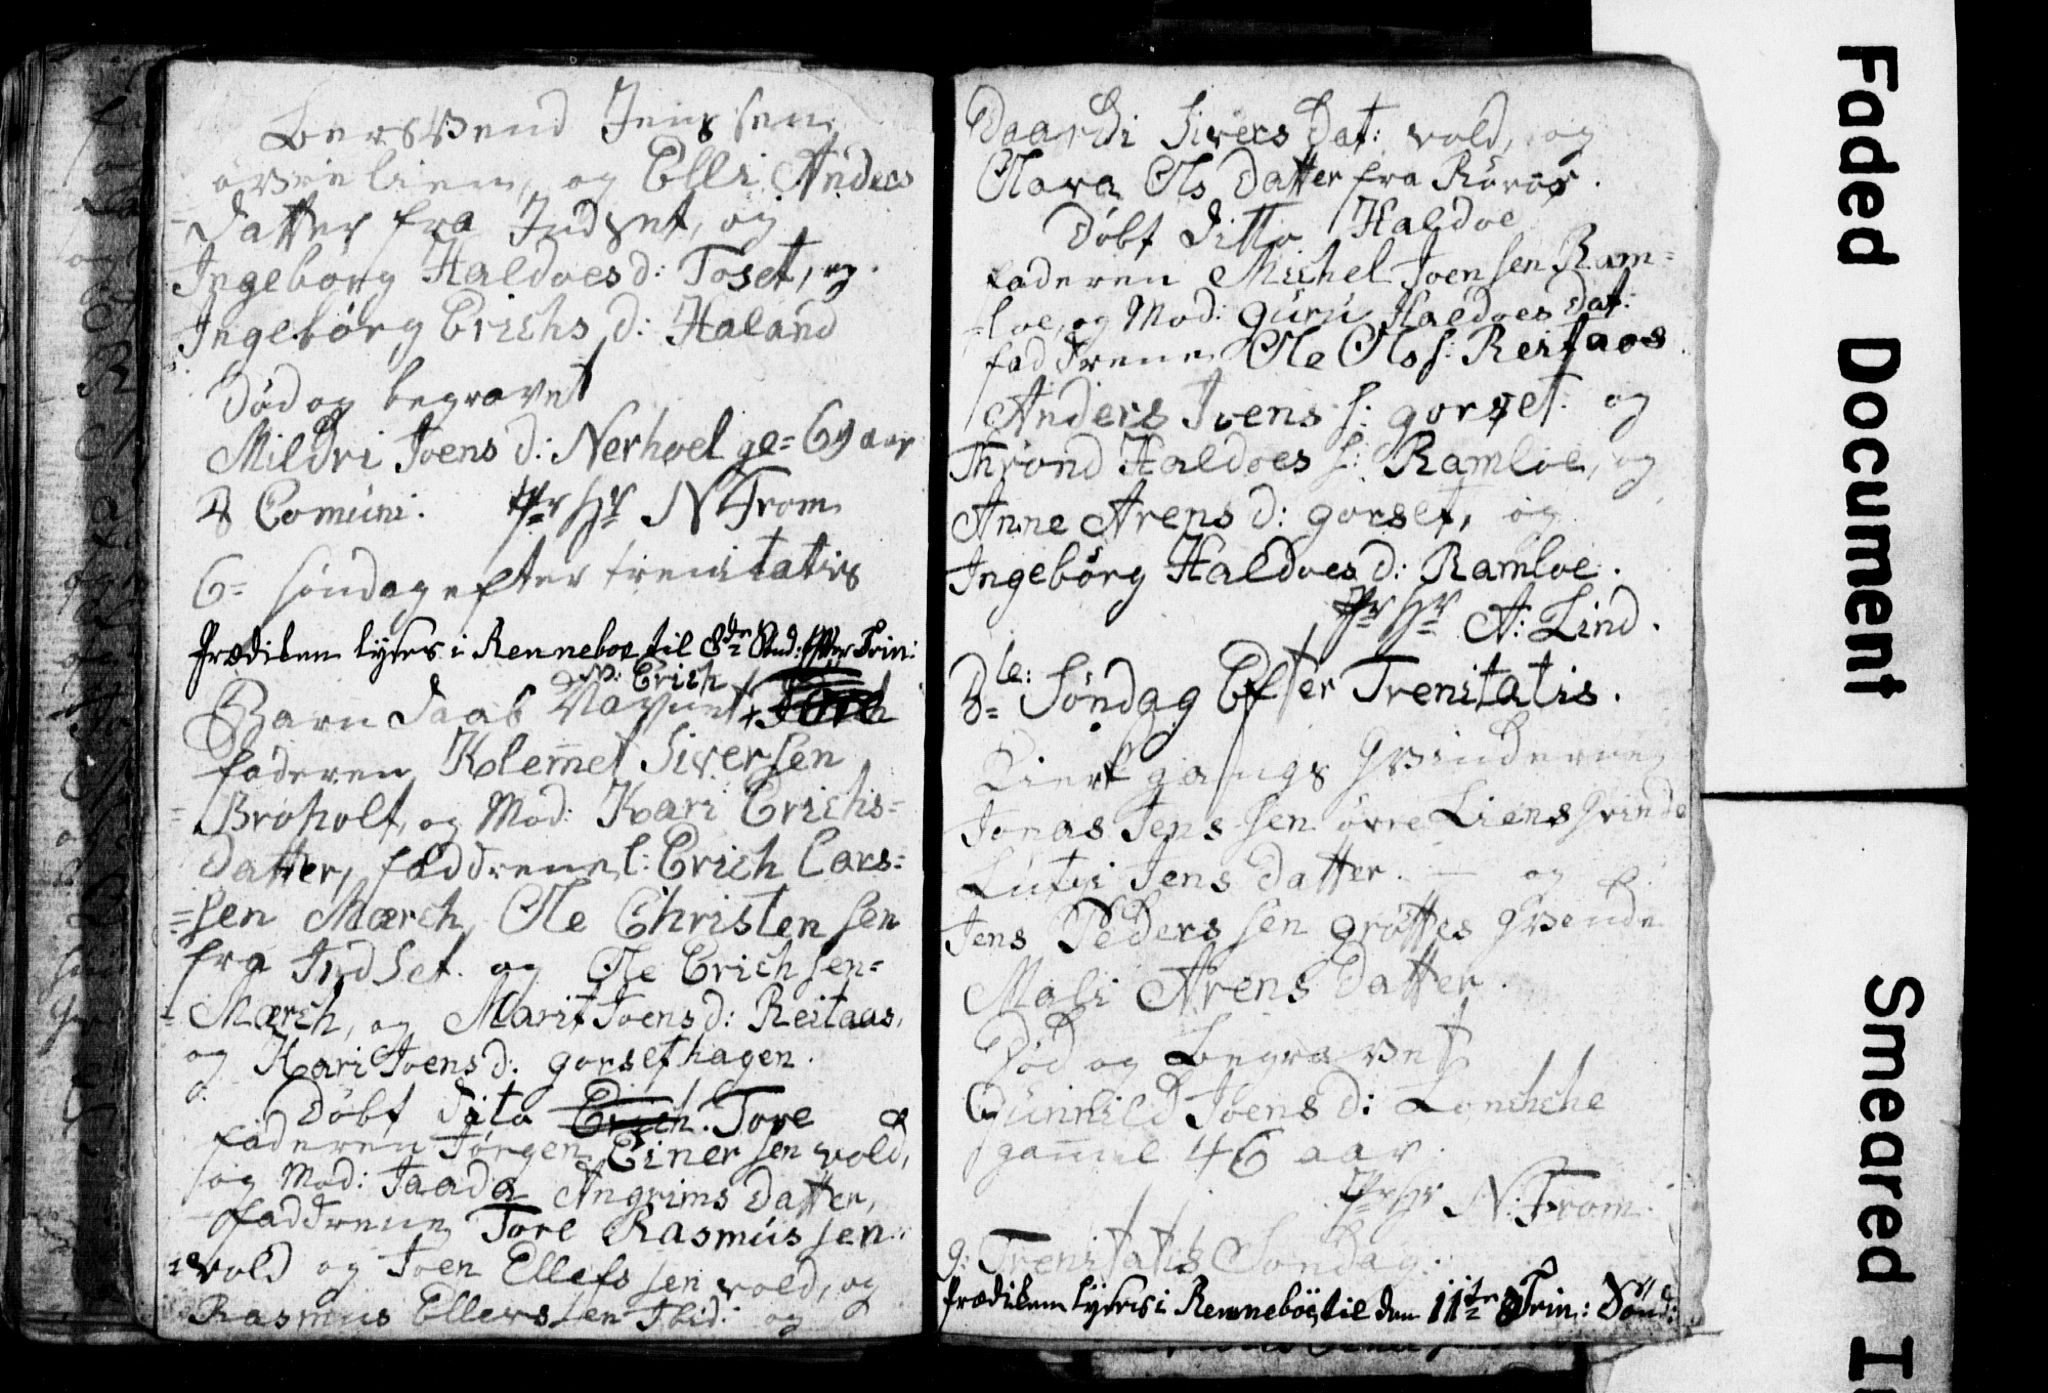 Bersvend Jenssen
øvreliem, og Elli Anders
-datter fra Indset, og
Ingebørg Haldoesd: Toset, og.
Ingebørg Erichsd: Haland
Død og begravet
Mildri Joens d: Nerhoel ge= 69 aar
Comuni: Pr Hr N From
6= søndag efter trenitatis
Prædiken lyses i Renneboe til 8de Sönd: efter Trin:
N: Erich
Barn daab Navnet
faderen Klem̄et Siversen
Broholt, og Mod: Kari Erichs=
datter, faddrene l: Erich Lars=
=sen Mærch, Ole Christensen
fra Indset. og Ole Erichsen=
Mærch, og Marit Joensd: Reitaas,
og Kari Joensd: gorsethagen.
Døbt dito Erich. Tore
faderen Jørgen Einersen vold,
og Mod: Jaada Angrims datter,
faddrene Tore Rasmussen
vold og Joen Ellefssen vold, og
Rasmus Ellevssen Ibid: og
Daardi Sivers dat: vold, og
Olava Ols datter fra Röros.
Döbt Ditto Haldoe
faderen Michel Joensen Ram=
-loe, og Mod: guru Haldoes dat:
faddrene Ole Ols s: Reitaas
Anders Joens s: gorset. og
Thrond Haldoes s: Ramloe, og
Anne Arens d: gorset, og
Ingebørg Haldoes d: Ramloe.
Pr Hr A: Lind.
8=de: Søndag Efter Trenitatis.
Kierkgangs qvinderne
Jonas Jenssen övre Liens qvinde
Jens datter. — og
Jens Pederssen grøttes qvende
Mali Arens datter.
Død og Begravet
Gunnild Joens d: Lonchhe
gam̄el 46 aar.
Pr Hr N: From.
9: Trenitatis Søndag:
Prædiken lyses i Renneböe, til den 11te Trin: Sönd:
Faded Document
Smeared I